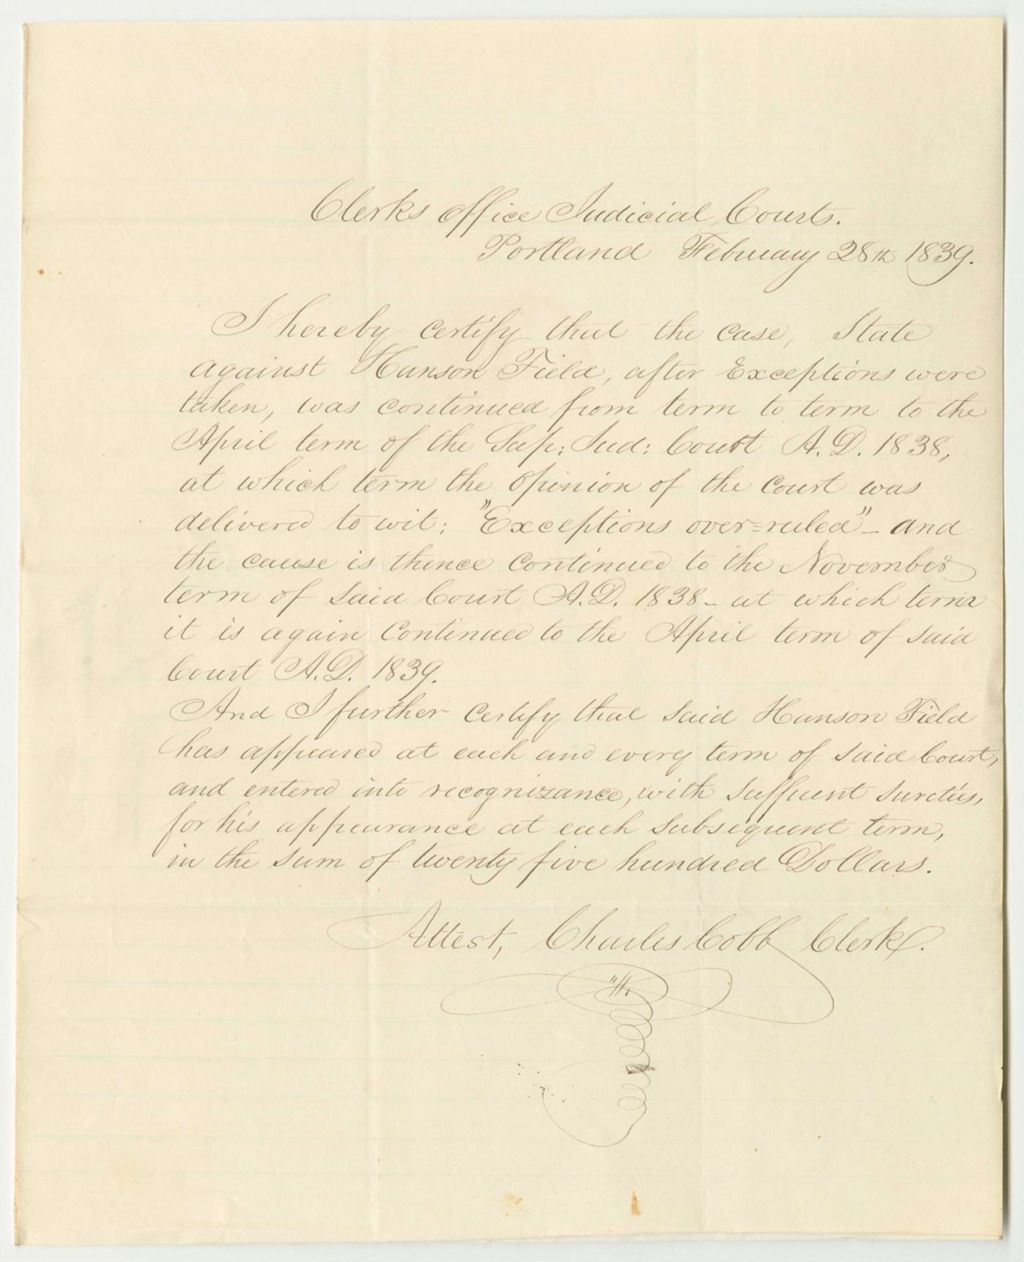 Clerks Office Judicial Courts.
Portland February 28th 1839.
I hereby certify that the case, State
against Hanson Field, after Exceptions were
taken, was continued from term to term to the
April term of the Sup; Jud: Court A.D. 1838,
at which term the Opinion of the Court was
delivered to wit; "Exceptions over=ruled" - and
the cause is thence continued to the November
term of said Court A.D. 1838 - at which term
it is again continued to the April term of said
Court A.D. 1839.
And I further certify that said Hanson Field
has appeared at each and every term of said Court,
and entered into recognizance, with suffient sureties,
for his appearance at each subsequent term,
in the sum of twenty five hundred Dollars.
Attest, Charles Cobb Clerk.